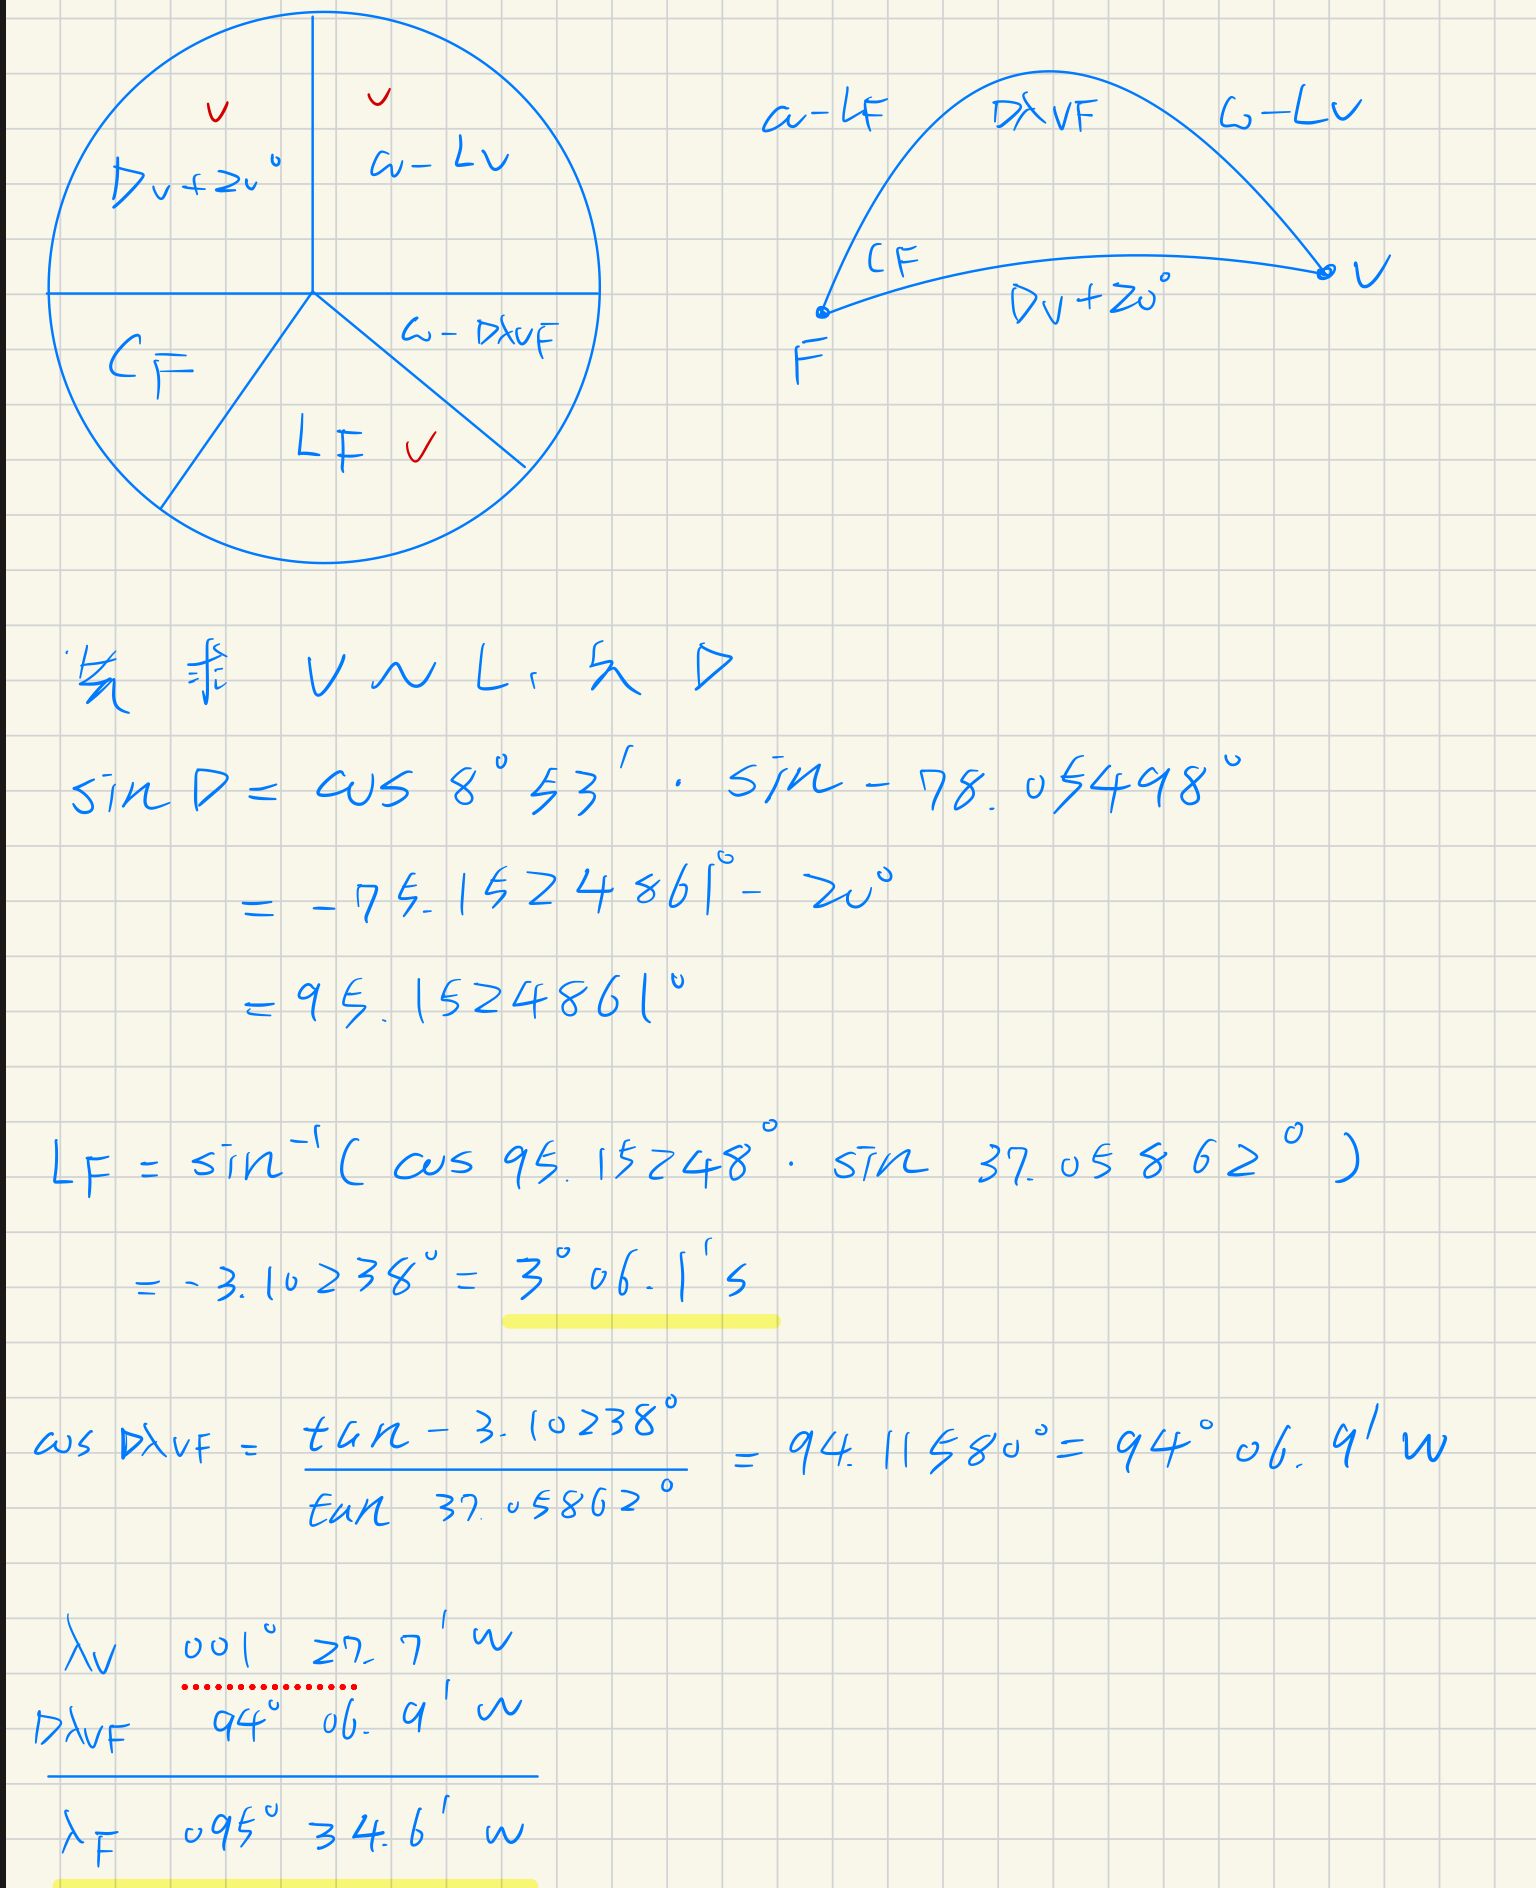 Dv+20°
co-Lv
CF
LF
co-DλVF
co-LF
DλVF
co-Lv
CF
Dv+20°
V
F
先求 V~L1 矢 D
sin D = cos 8°53′ · sin -78.05498°
= -75.1524861° - 20°
= 95.1524861°
LF = sin⁻¹( cos 95.15248° · sin 37.05862° )
= -3.10238° = 3°06.1′S
cos DλVF = tan -3.10238° / tan 37.05862° = 94.11580° = 94°06.9′W
λV 001° 27.7′W
DλVF 94° 06.9′W
λF 095° 34.6′W